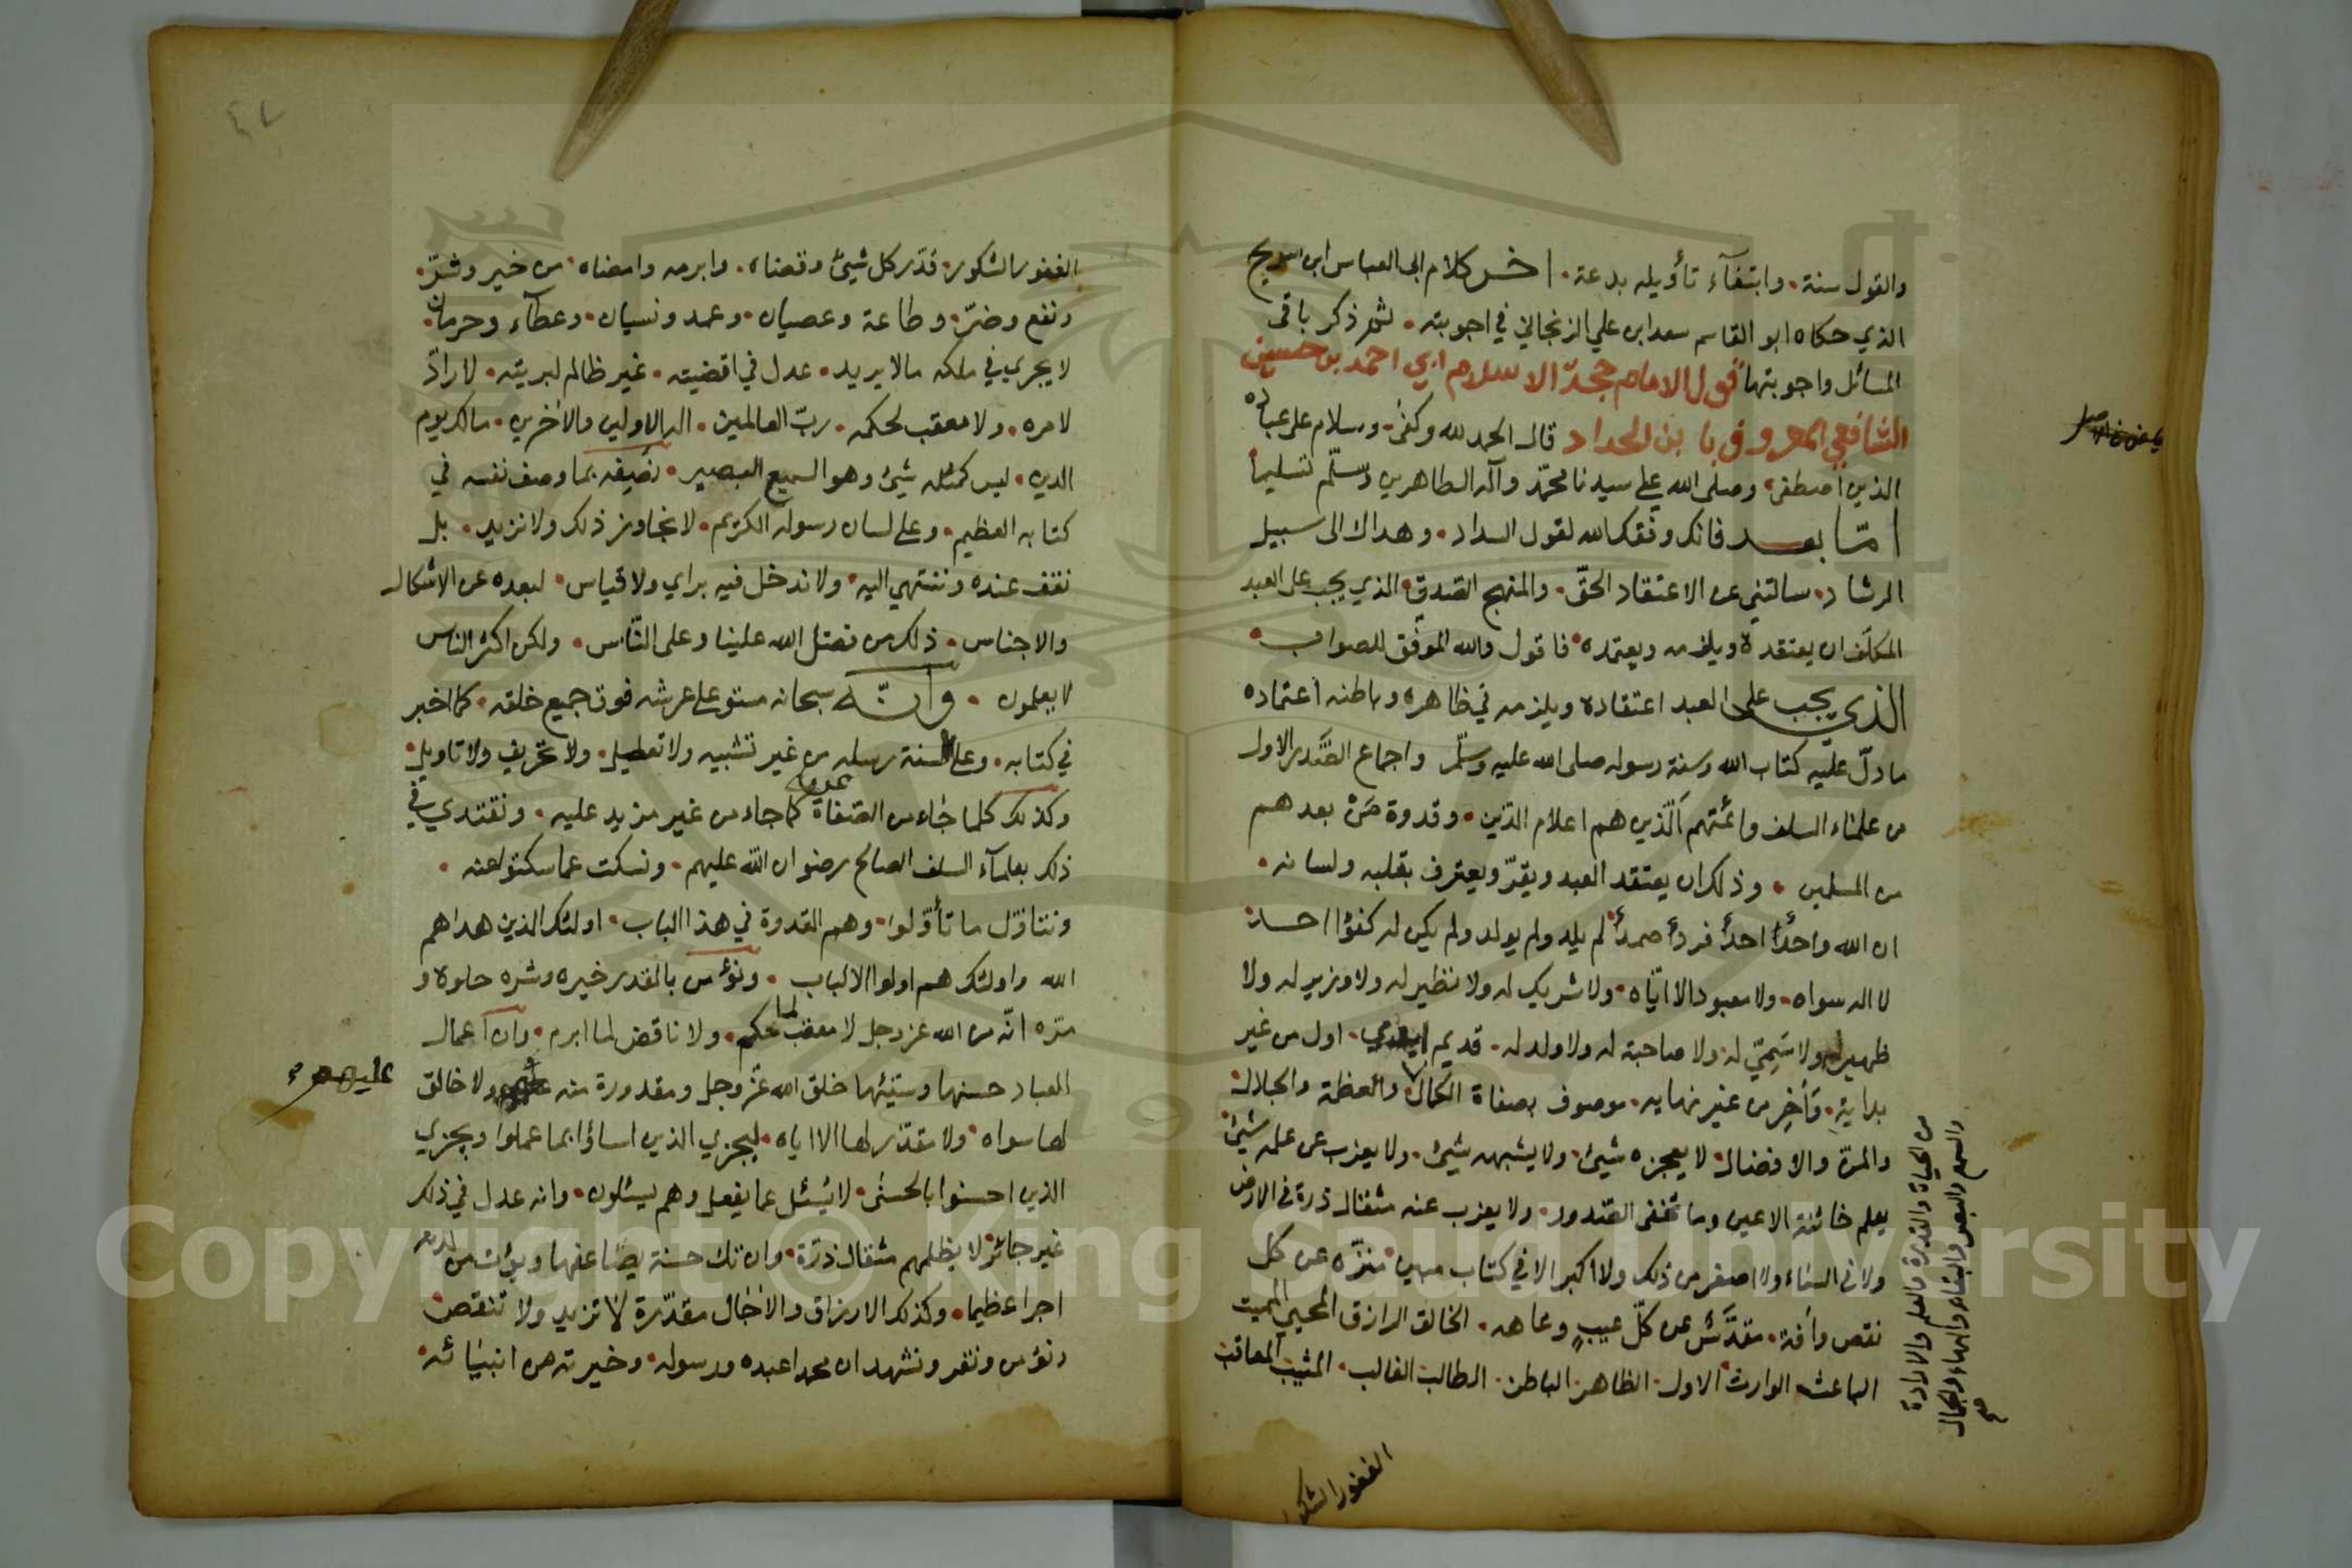 والقول سنة. وابتغآء تأويله بدعة. اخر كلام ابى العباس ابن سريج
الذي حكاه ابو القاسم سعد ابن علي الزنجاني في اجوبته. ثم ذكر باقى
المسائل واجوبتها قول الامام حجة الاسلام ابي احمد بن حسين
الشافعي المعروف با بن الحداد قال الحمد لله وكفى. وسلام على عباده
الذين اصطفى. وصلى الله على سيدنا محمد وآله الطاهرين وسلّم تسليما
امّا بعد فانك وفقك الله لقول السداد. وهداك الى سبيل
الرشاد. سالتني عن الاعتقاد الحقّ. والمنهج الصدق. الذي يجب على العبد
المكلف ان يعتقده ويلزمه ويعتمده. فاقول والله الموفق للصواب.
الذي يجب على العبد اعتقاده ويلزمه في ظاهره وباطنه اعتماده
مادلّ عليه كتاب الله وسنة رسوله صلى الله عليه وسلّم واجماع الصّدر الاول
من علماء السلف وائمتهم الّذين هم اعلام الدّين. وقدوة مَنْ بعدهم
من المسلمين. وذلك ان يعتقد العبد ويقرّ ويعترف بقلبه ولسانه.
ان الله واحدٌ احدٌ فردٌ صمدٌ لم يلد ولم يولد ولم يكن له كفؤا احد.
لا اله سواه. ولا معبود الا ايّاه. ولا شريك له ولا نظير له ولا وزير له ولا
ظهير له ولا سَمِيّ له. ولا صاحبة له ولا ولد له. قديم ابدي. اول من غير
بدايةٍ. وآخِر من غير نهايه. موصوف بصفاة الكمال. والعظمة والجلال.
من الحياة والقدرة والعلم والارادة
والسمع والبصر والبقاء والبهاء والجمال
والمنّ والافضال. لا يعجزه شيئ. ولا يشبهه شيئ. ولا يعزب عن علمه شيئ.
يعلم خائنة الاعين وما تخفى الصّدور. ولا يعزب عنه مثقال ذرة في الارض
ولا في السّماء ولا اصغر من ذلك ولا اكبر الا في كتاب مبين. منزّه عن كل
نقص وآفة. مقدّس عن كلّ عيبٍ وعاهه. الخالق الرازق المحيي المميت
الباعث الوارث الاول. الظاهر. الباطن. الطالب الغالب. المثيب المعاقب
الغفور الشكور
٤٧
الغفور الشكور. قدّر كل شيئ وقضاه. وابرمه وامضاه. من خير وشرّ.
ونفع وضرّ. وطاعة وعصيان. وعمد ونسيان. وعطآء وحرمان.
لا يجري في ملكه مالا يريد. عدل في اقضيته. غير ظالم لبريته. لا رادّ
لامره. ولا معقب لحكمه. ربّ العالمين. اله الاولين والآخرين. مالك يوم
الدين. ليس كمثله شيئ وهو السميع البصير. نصِفه بما وصف نفسه في
كتابه العظيم. وعلى لسان رسوله الكريم. لا نجاوز ذلك ولا نزيد. بل
نقف عنده وننتهي اليه. ولا ندخل فيه براي ولا قياس. لبعده عن الاشكال
والاجناس. ذلك من فضل الله علينا وعلى النّاس. ولكن اكثر الناس
لا يعلمون. وانّه سبحانه مستو على عرشه فوق جميع خلقه. كما اخبر
في كتابه. وعلى السنة رسله من غير تشبيه ولا تعطيل. ولا تحريف ولا تاويل.
وكذلك كلما جاء من الصفاة نمره كما جاء من غير مزيد عليه. ونقتدي في
ذلك بعلمآء السلف الصالح رضوان الله عليهم. ونسكت عما سكتوا عنه.
ونتاوّل ما تأوّلوا. وهم القدوة في هذا الباب. اولئك الذين هداهم
الله واولئك هم اولوا الالباب. ونؤمن بالقدر خيره وشره حلوه و
مرّه انّه من الله عز وجل لا معقب لما حكم. ولا ناقض لما ابرم. وان اعمال
العباد حسنها وسيّئها خلق الله عزّ وجل ومقدورة منه عليهم ولا خالق
عليهم
لها سواه. ولا مقدّر لها الا اياه. ليجزي الذين اساؤا بما عملوا ويجزي
الذين احسنوا بالحسنى. لا يُسئل عما يفعل وهم يسئلون. وانه عدل في ذلك
غير جائر. لا يظلم مثقال ذرّة. وان تك حسنة يضاعفها ويؤت من لدنه
اجرا عظيما. وكذلك الارزاق والآجال مقدّرة لا تزيد ولا تنقص.
ونؤمن ونقر ونشهد ان محمدا عبده ورسوله. وخيرته من انبيائه.
Copyright © King Saud University